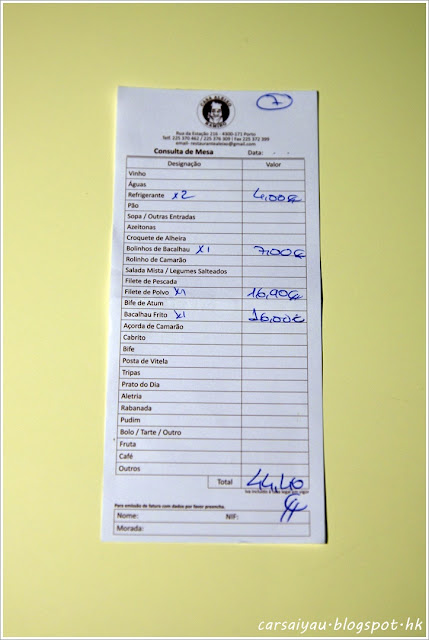 7
Rua da Estação 216 - 4300-171 Porto
Consulta de Mesa Data:
Designação Valor
Vinho
Águas
Refrigerante x2 4,00€
Pão
Sopa / Outras Entradas
Azeitonas
Croquete de Alheira
Bolinhos de Bacalhau x1 7,00€
Rolinho de Camarão
Salada Mista / Legumes Salteados
Filete de Pescada
Filete de Polvo x1 16,90€
Bife de Atum
Bacalhau Frito x1 16,00€
Açorda de Camarão
Cabrito
Bife
Posta de Vitela
Tripas
Prato do Dia
Aletria
Rabanada
Pudim
Bolo / Tarte / Outro
Fruta
Café
Outros
Total 44,40
Para emissão de fatura com dados por favor preencha.
Nome: NIF:
Morada:
carsaiyau.blogspot.hk